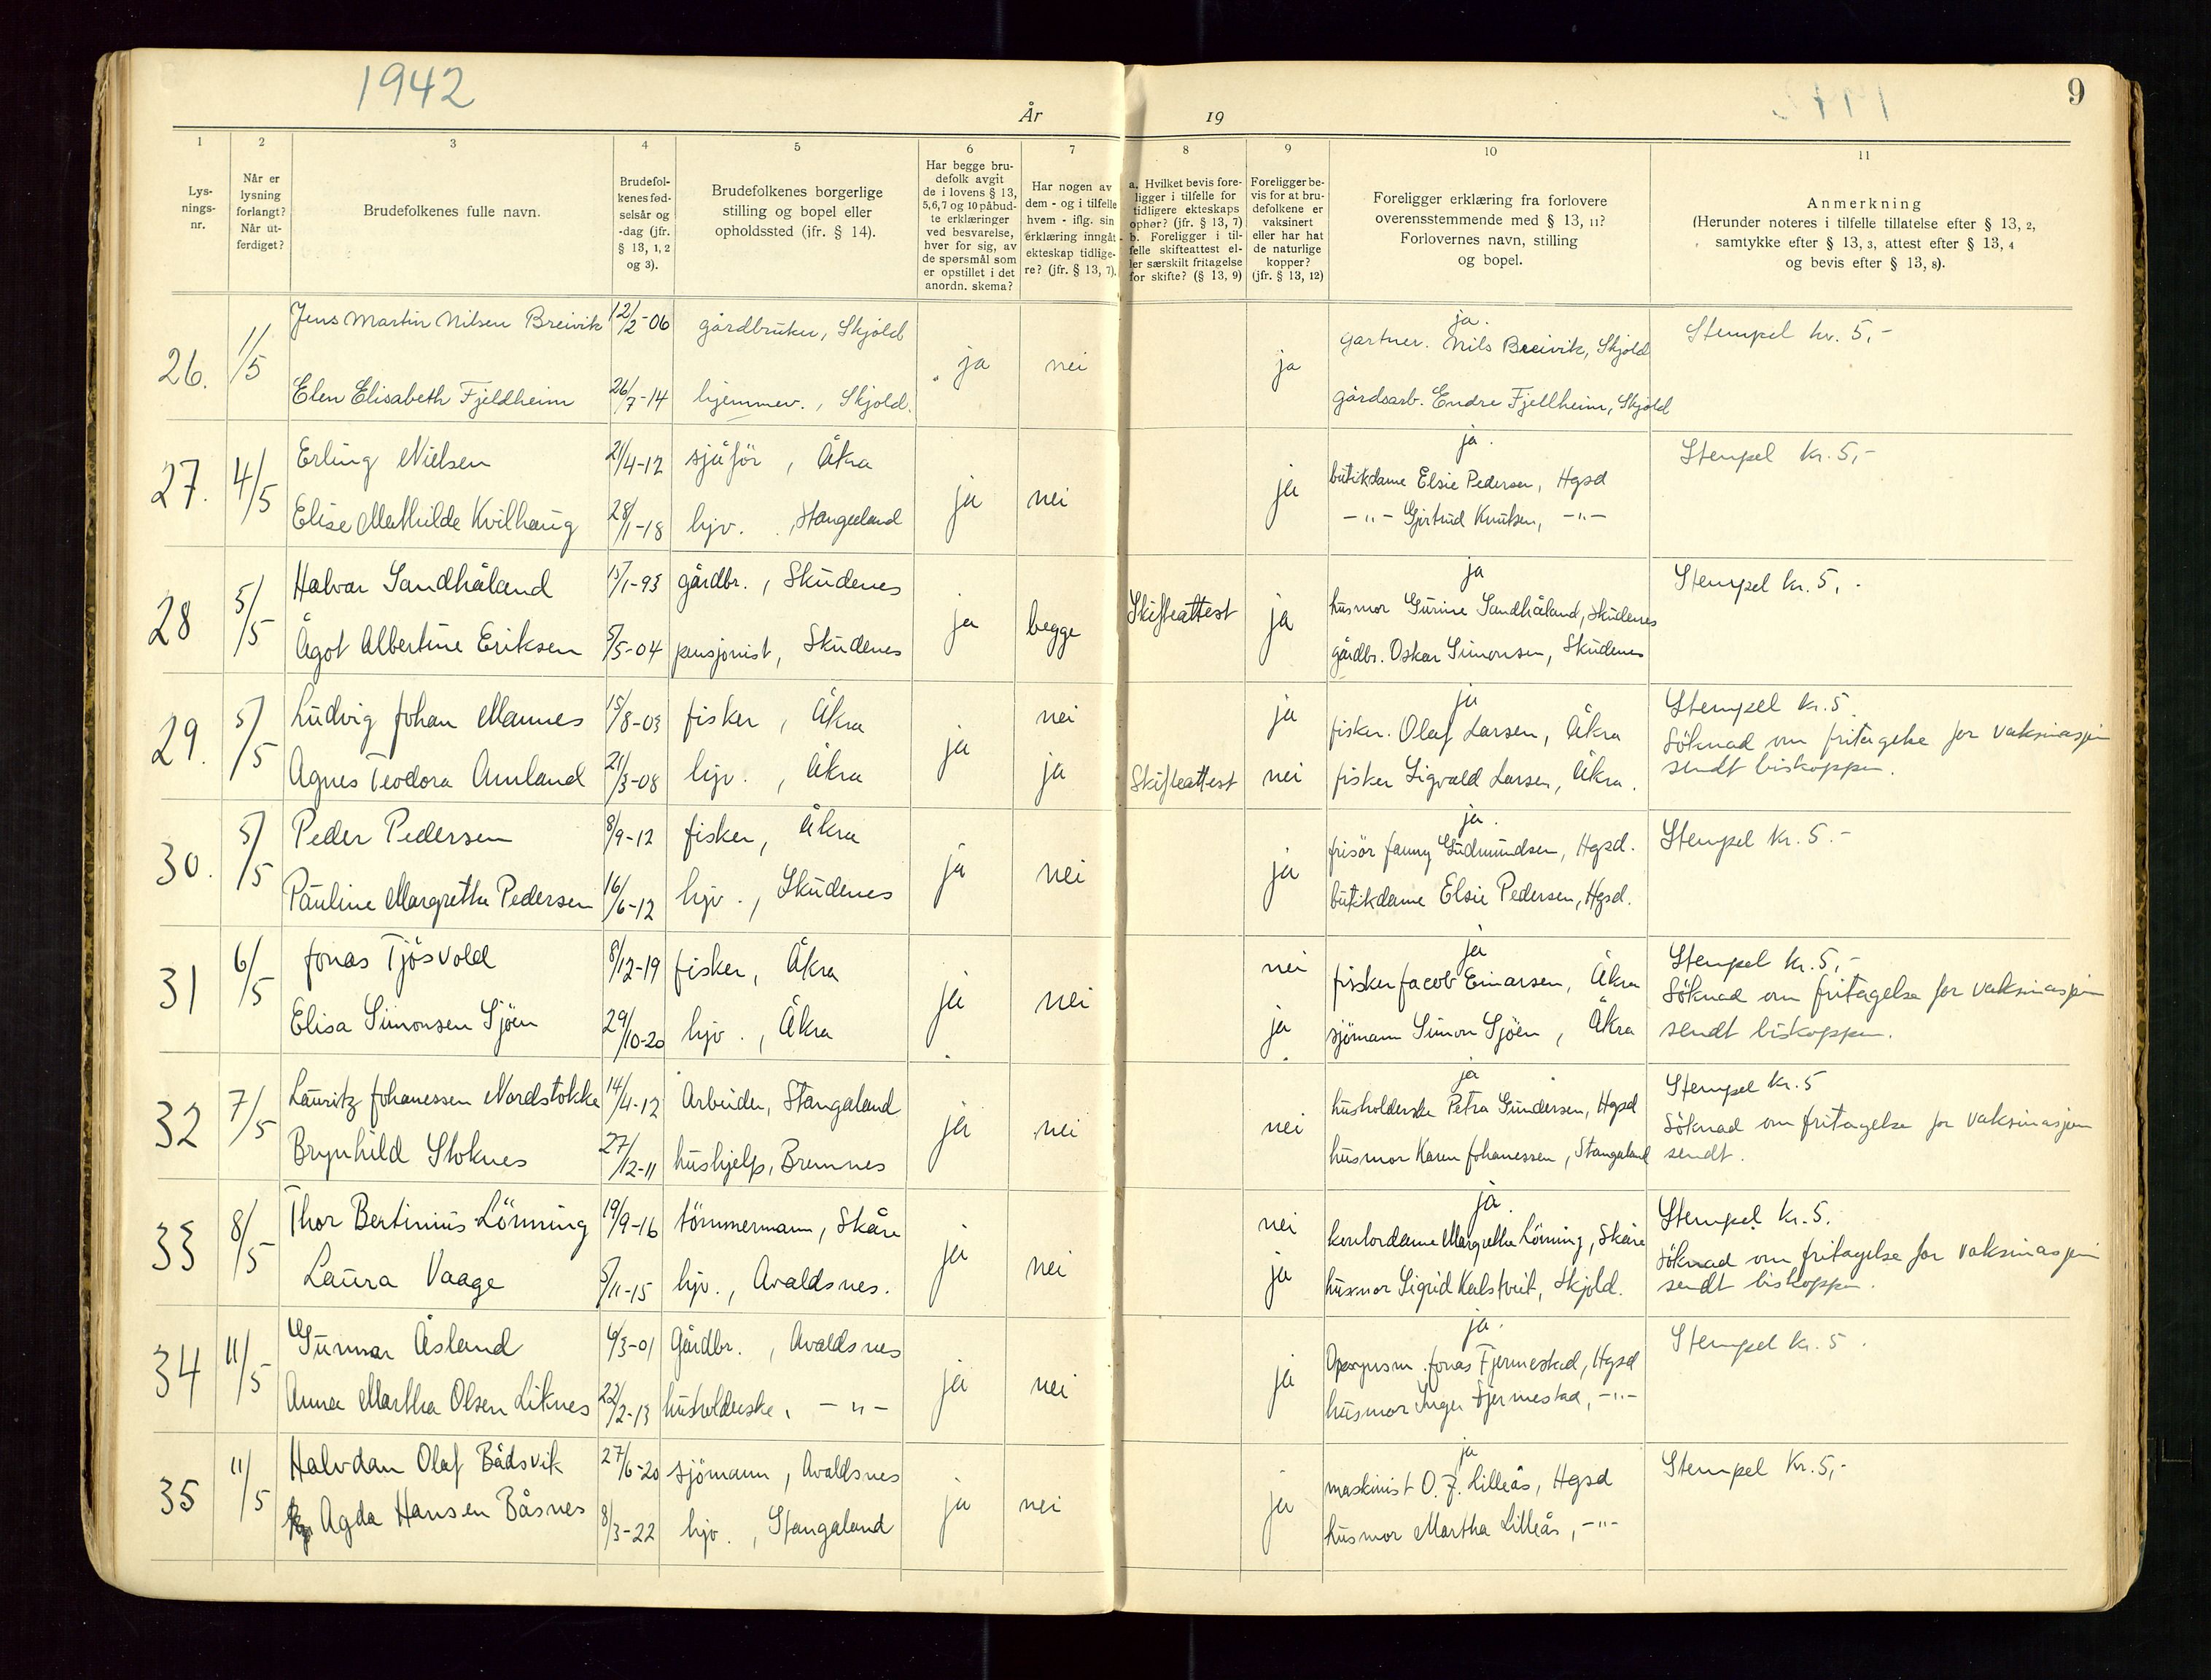 1942
År
19
9
1
Lys-
nings-
nr.
2
Når er
lysning
forlangt?
Når ut-
ferdiget?
3
Brudefolkenes fulle navn.
4
Brudefol-
kenes fød-
selsår og
-dag (jfr.
§ 13, 1, 2
og 3).
5
Brudefolkenes borgerlige
stilling og bopel eller
opholdssted (ifr. § 14).
6
Har begge bru-
defolk avgit
de i lovens § 13,
5,6,7 og 10 påbud-
te erklæringer
ved besvarelse,
hver for sig, av
de spørsmål som
er opstillet i det
anordn. skema?
7
Har nogen av
dem - og i tilfelle
hvem - iflg. sin
erklæring inngåt
ekteskap tidlige-
re? (jfr. § 13, 7).
8
a. Hvilket bevis fore-
ligger i tilfelle for
tidligere ekteskaps
ophør? (jfr. § 13, 7)
b. Foreligger i til-
felle skifteattest el-
ler særskilt fritagelse
for skifte? (§ 13, 9)
9
Foreligger be-
vis for at bru-
defolkene er
vaksinert
eller har hat
de naturlige
kopper?
(jfr. § 13, 12)
10
Foreligger erklæring fra forlovere
overensstemmende med § 13, 11?
Forlovernes navn, stilling
og bopel.
11
Anmerkning
(Herunder noteres i tilfelle tillatelse efter § 13, 2,
samtykke efter § 13, 3, attest efter § 13, 4
og bevis efter § 13, 8).
26. 1/5
Jens Martin Nilsen Breivik 12/2-06 gårdbruker, Skjold
Elen Elisabeth Fjeldheim 26/7-14 hjemmev., Skjold.
ja nei ja
ja.
gartner. Nils Breivik, Skjold
gårdsarb. Endre Fjellheim, Skjold
Stempel kr. 5,-
27. 4/5
Erling Nielsen 21/4-12 sjåför, Åkra
Elise Mathilde Kvilhaug 28/1-18 hjv., Stangeland
ja nei ja
ja.
butikdame Elsie Pedersen, Hgsd
-"- Gjertrud Knutsen, -"-
Stempel kr. 5,-
28 5/5
Halvar Sandhåland 15/1-93 gårdbr., Skudenes
Ågot Albertine Eriksen 5/5-04 pensjonist, Skudenes
ja begge Skifteattest ja
ja
husmor Gurine Sandhåland, Skudenes
gårdbr. Oskar Simonsen, Skudenes
Stempel kr. 5,-
29. 5/5
Ludvig Johan Mannes 15/8-03 fisker, Åkra
Agnes Teodora Amland 21/3-08 hjv., Åkra
ja
nei ja
ja Skifteattest nei
ja
fisker. Olaf Larsen, Åkra
fisker Sigvald Larsen, Åkra.
Stempel kr. 5.
Söknad om fritagelse for vaksinasjon
sendt biskoppen.
30. 5/5
Peder Pedersen 8/9-12 fisker, Åkra
Pauline Margrethe Pedersen 16/6-12 hjv., Skudenes
ja nei ja
ja.
frisör Fanny Gudmundsen, Hgsd.
butikdame Elsie Pedersen, Hgsd.
Stempel kr. 5.-
31 6/5
Jonas Tjösvold 8/12-19 fisker, Åkra
Elisa Simonsen Sjöen 29/10-20 hjv., Åkra
ja nei
nei
ja
ja
fisker Jacob Einarsen, Åkra
sjömann Simon Sjöen, Åkra
Stempel kr. 5,-
Söknad om fritagelse for vaksinasjon
sendt biskoppen.
32 7/5
Lauritz Johanessen Nordstokke 14/4-12 Arbeider, Stangaland
Brynhild Stoknes 27/12-11 hushjelp, Bremnes
ja nei nei
ja
husholderske Petra Gundersen, Hgsd
husmor Karen Johanessen, Stangaland
Stempel kr. 5
Söknad om fritagelse for vaksinasjon
sendt.
33 8/5
Thor Bertinius Lönning 19/9-16 tömmermann, Skåre
Laura Vaage 5/11-15 hjv., Avaldsnes.
ja nei
nei
ja
ja.
kontordame Margrethe Lönning, Skåre
husmor Sigrid Kalstveit, Skjold.
Stempel kr. 5.
Söknad om fritagelse for vaksinasjon
sendt biskoppen.
34 11/5
Gunnar Åsland 4/3-01 Gårdbr., Avaldsnes
Anna Martha Olsen Liknes 22/2-13 husholderske, -"-
ja nei ja
ja.
Jonas Fjermestad, Hgsd
husmor Inger Fjermestad, -"-
Stempel kr. 5.
35 11/5
Halvdan Olaf Bådsvik 27/6-20 sjömann, Avaldsnes
Agda Hansen Båsnes 8/3-22 hjv., Stangaland
ja nei ja
ja
maskinist O. J. Lilleås, Hgsd
husmor Martha Lilleås, -"-
Stempel Kr. 5,-